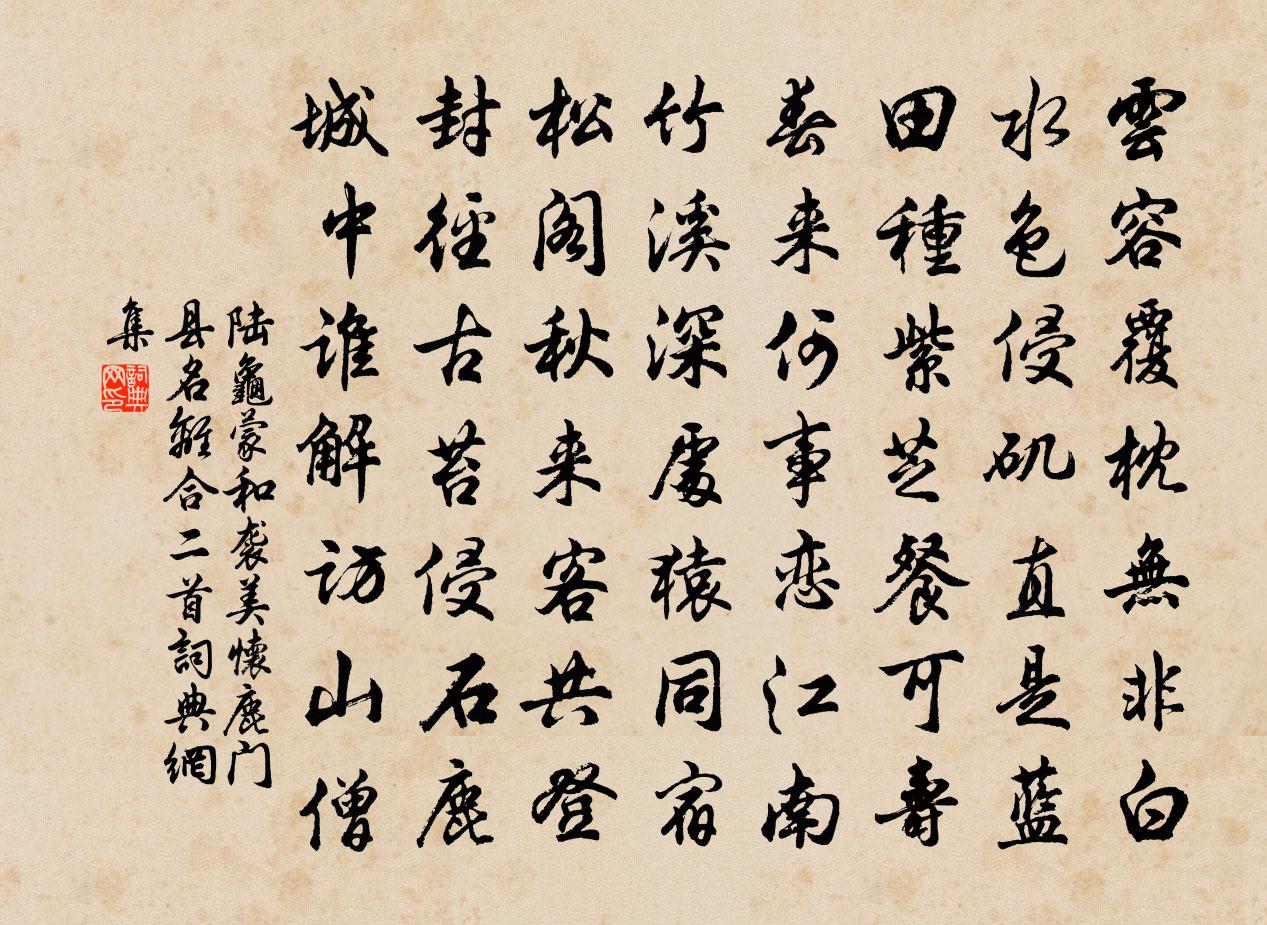 雲容覆枕無非白
水色侵矶直是藍
田種紫芝餐可壽
春来何事恋江南
竹溪深處猿同宿
松阁秋来客共登
封徑古苔侵石鹿
城中谁解访山僧
陆龜蒙和袭美懷鹿门
县名離合二首詞典網
集
詞典
网印